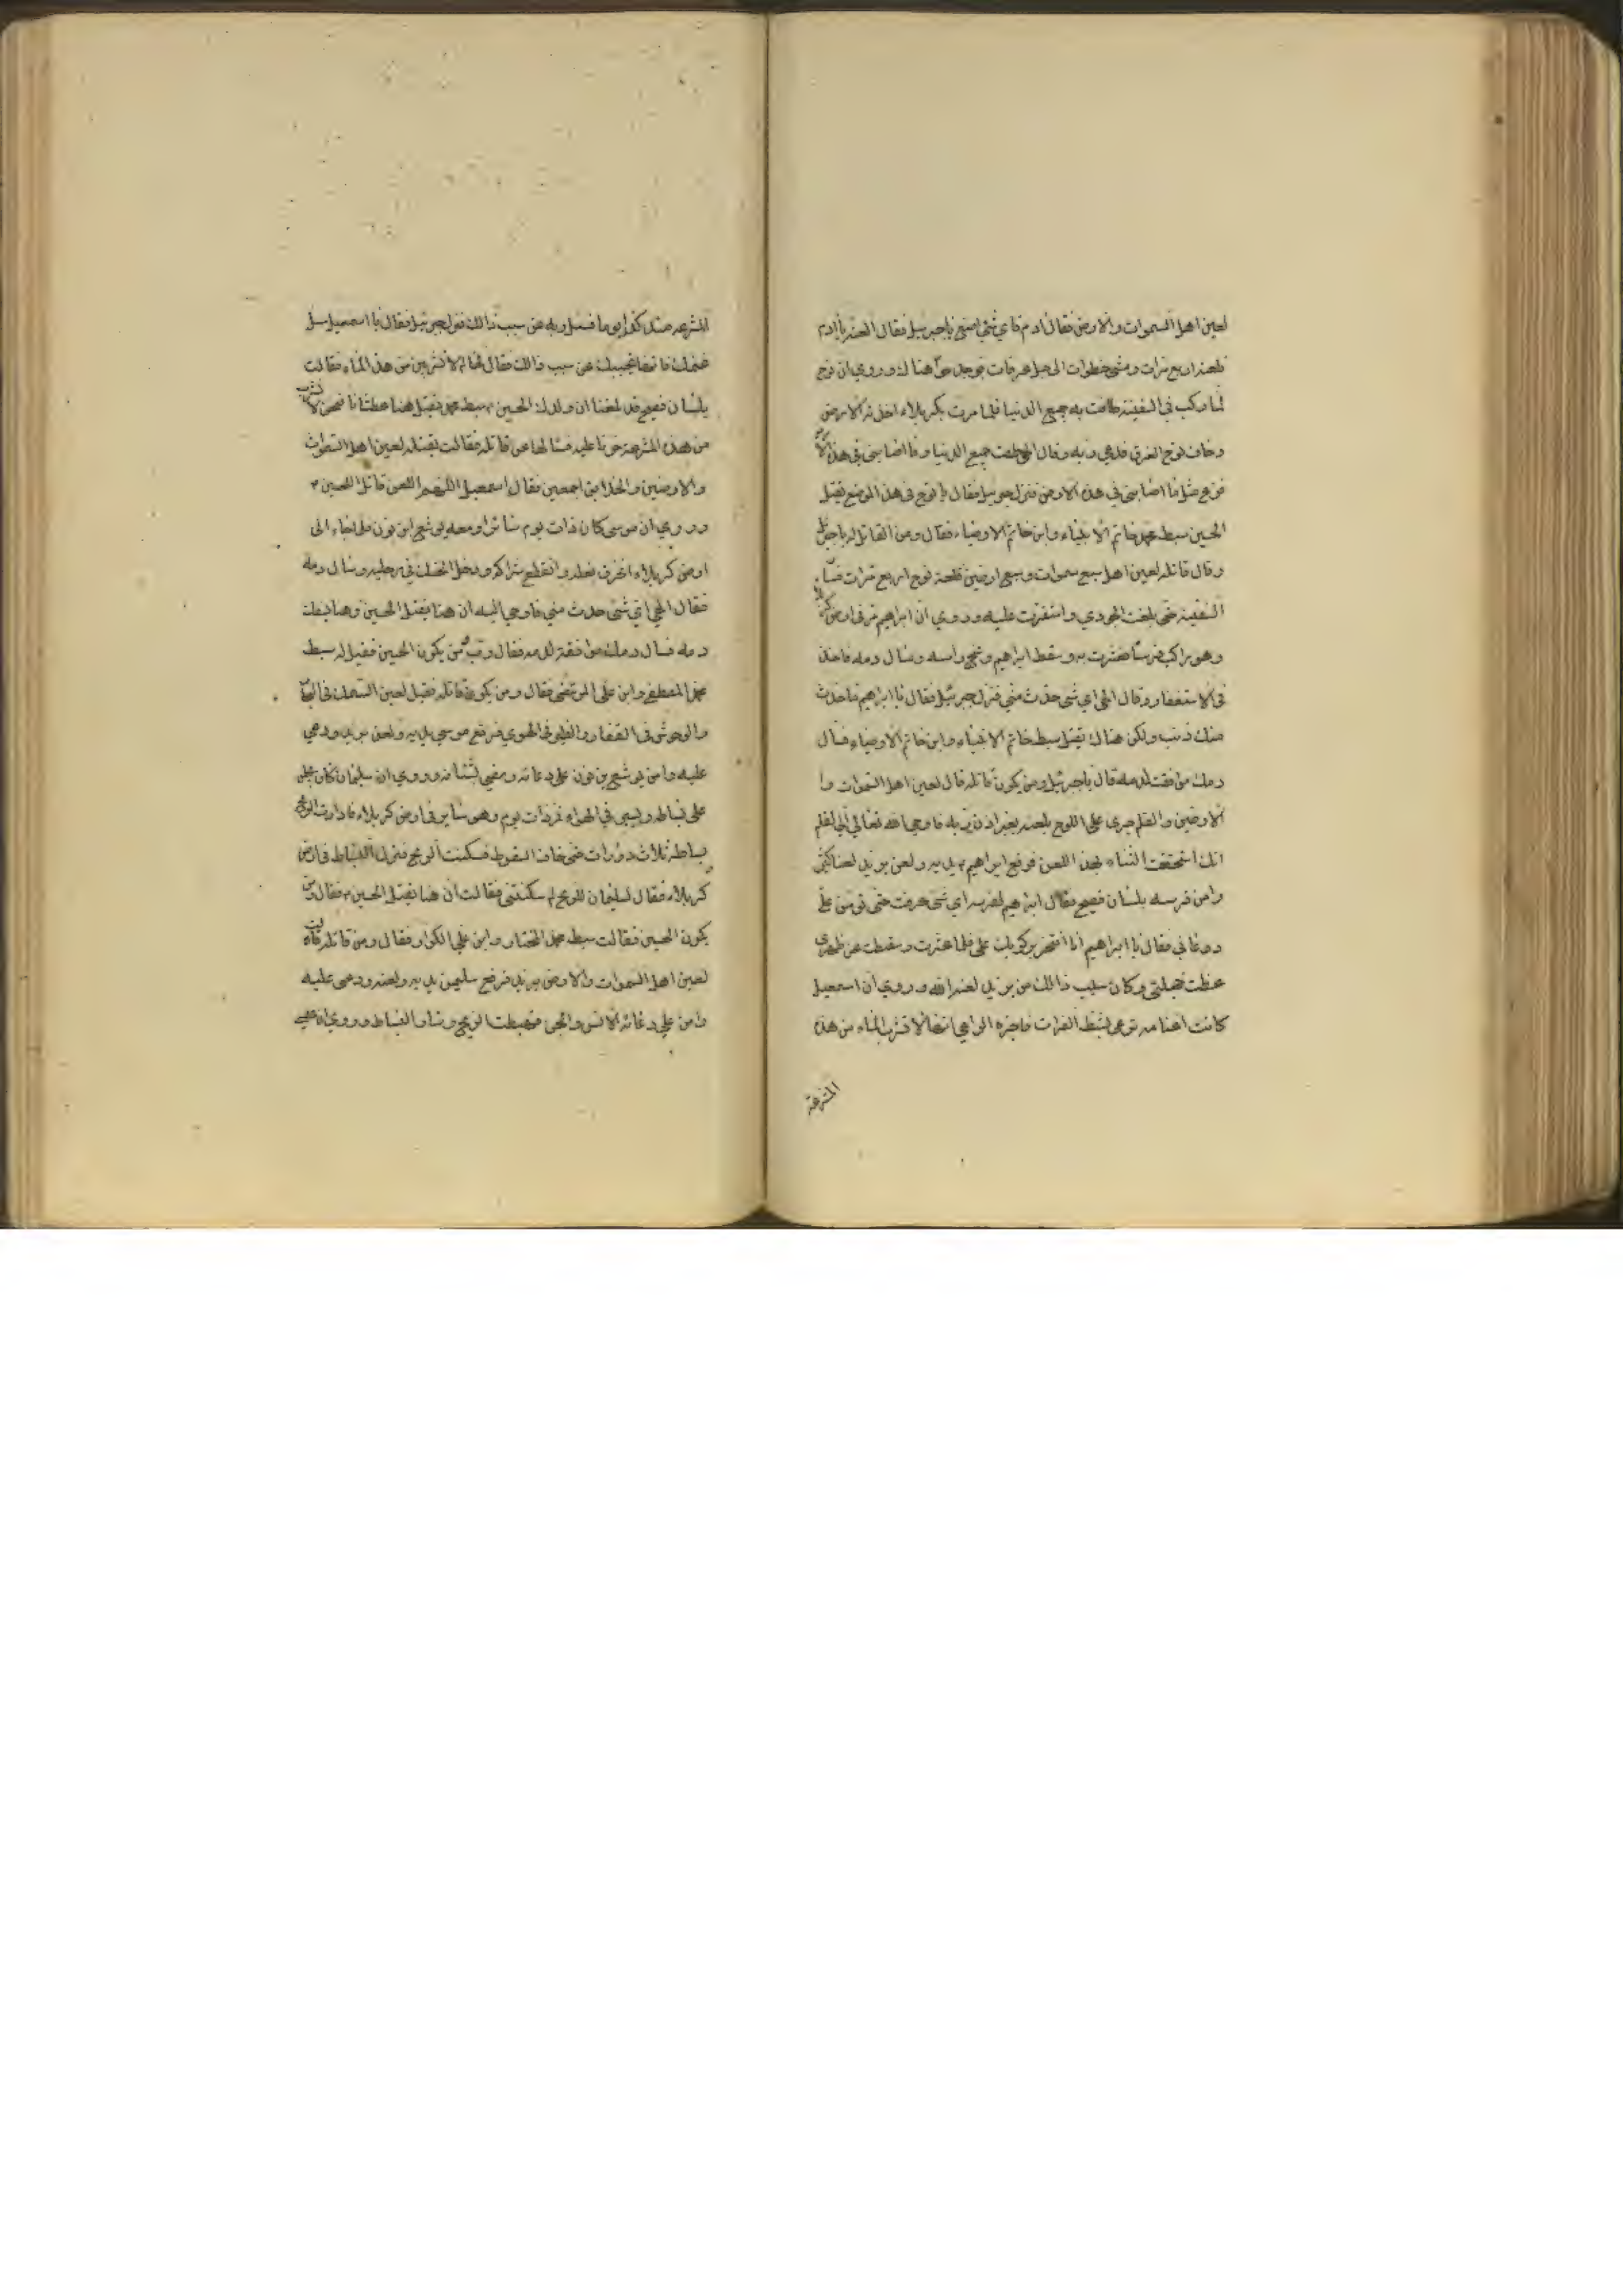 لعين اهل السموات والارض فقال ادم فاي شئ اصنع يا جبرئيل فقال العنه يا ادم
فلعنه اربع مرات ومشى خطوات الى جبل عرفات فوجد حوا هناك وروي ان نوح
لما ركب في السفينة طافت به جميع الدنيا فلما مرت بكربلاء اخذته الارض
وخاف نوح الغرق فدعى ربه وقال الهي طفت جميع الدنيا وما اصابني
فزع مثل ما اصابني في هذه الارض فنزل جبرئيل فقال يا نوح في هذا الموضع يقتل
الحسين سبط محمد خاتم الانبياء وابن خاتم الاوصياء فقال ومن القاتل له يا جبرئيل
وقال قاتله لعين اهل سبع سموات وسبع ارضين فلعنه نوح اربع مرات
السفينة حتى بلغت الجودي واستقرت عليه وروي ان ابراهيم مر في ارض كربلا
وهو راكب فرسا فعثرت به وسقط ابراهيم وشج راسه وسال دمه فاخذ
في الاستغفار وقال الهي اي شئ حدث مني فنزل جبرئيل فقال يا ابراهيم ما حدث
منك ذنب ولكن هناك يقتل سبط خاتم الانبياء وابن خاتم الاوصياء فسال
دمك موافقة لدمه قال يا جبرئيل ومن يكون قاتله قال لعين اهل السموات وا
الارضين والقلم جرى على اللوح بلعنه بغير اذن ربه فاوحى الله تعالى الى القلم
انك استحققت الثناء بهذا اللعن فرفع ابراهيم يديه ولعن يزيد لعنا كثيرا
وامن فرسه بلسان فصيح فقال ابراهيم لفرسه اي شئ عرفت حتى تومن على
دعائي فقال يا ابراهيم انا افتخر بركوبك على فلما عثرت وسقطت عن ظهري
عظمت خجلتي وكان سبب ذالك من يزيد لعنه الله وروي ان اسمعيل
كانت اغنامه ترعى بشط الفرات فاخبره الراعي انها لا تشرب الماء من هذه
المشرعة
المشرعه منذ كذا يوما فسئل ربه عن سبب ذالك فنزل جبرئيل فقال يا اسمعيل سل
غنمك فانها تجيبك عن سبب ذالك فقال لها لم لا تشربين من هذا الماء فقالت
بلسان فصيح قد بلغنا ان ولدك الحسين سبط محمد يقتل هنا عطشانا فنحن لا نشرب
من هذه المشرعة حزنا عليه فسالها عن قاتله فقالت يقتله لعين اهل السموات
والارضين والخلائق اجمعين فقال اسمعيل اللهم العن قاتل الحسين
وروي ان موسى كان ذات يوم سائرا ومعه يوشع ابن نون فلما جاء الى
ارض كربلاء انخرق نعله وانقطع شراكه ودخل الحسك في رجليه وسال دمه
فقال الهي اي شئ حدث مني فاوحي اليه ان هنا يقتل الحسين وهنا يسفك
دمه فسال دمك موافقة لدمه فقال رب ومن يكون الحسين فقيل له سبط
محمد المصطفى وابن على المرتضى فقال ومن يكون قاتله فقيل لعين السمك في البحار
والوحوش في القفار والطير في الهوى فرفع موسى يديه ولعن يزيد ودعى
عليه وامن يوشع بن نون على دعائه ومضى لشانه وروي ان سليمان كان يجلس
على بساطه ويسير في الهواء فمر ذات يوم وهو ساير في ارض كربلاء فادارت الريح
بساطه ثلاث دورات حتى خاف السقوط فسكنت الريح فنزل البساط في ارض
كربلاء فقال سليمان للريح لم سكنتي فقالت ان هنا يقتل الحسين فقال ومن
يكون الحسين فقالت سبط محمد المختار وابن على الكرار فقال ومن قاتله قالت
لعين اهل السموات والارض يزيد فرفع سليمن يديه ولعنه ودعى عليه
وامن على دعائه الانس والجن فهبت الريح وسار البساط وروي ان عيسى